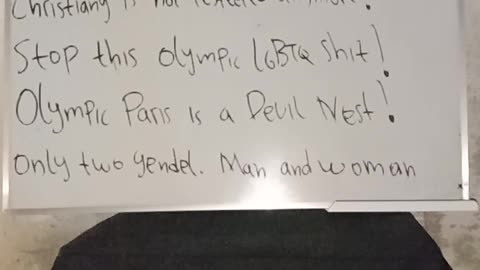 Christiany is not
Stop this olympic LGBTQ shit!
Olympic Paris is a Devil Nest!
Only two gendel. Man and woman